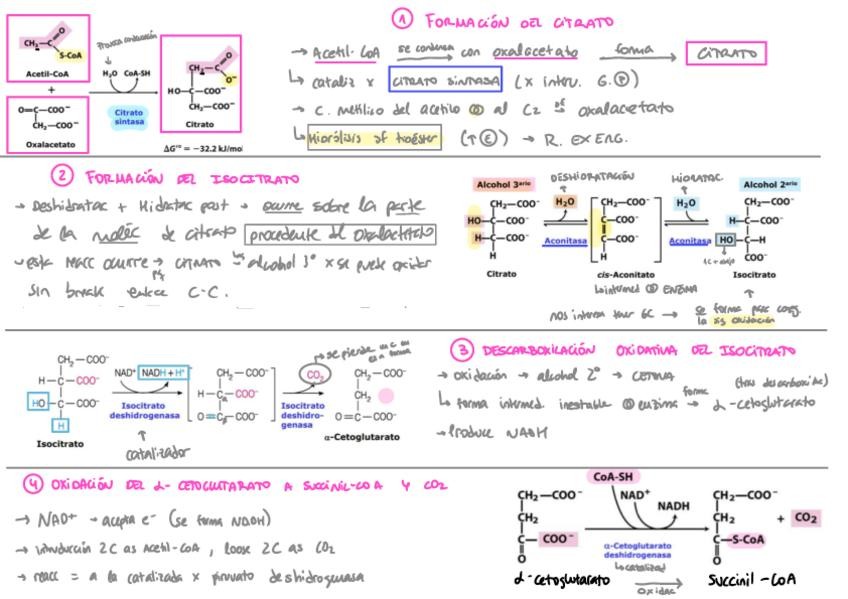 ① FORMACIÓN DEL CITRATO
CH₂–C O
S-CoA
Acetil-CoA
+
O=C–COO⁻
CH₂–COO⁻
Oxalacetato
H₂O CoA-SH
Citrato sintasa
CH₂–C O
O⁻
HO–C–COO⁻
CH₂–COO⁻
Citrato
ΔG'° = −32.2 kJ/mol
→ Acetil-CoA se condensa con oxalacetato forma → CITRATO
↳ cataliz x CITRATO SINTASA (x interv. G.Ⓟ)
→ C. metílico del acetilo al C2 of oxalacetato
↳ Hidrólisis of tioéster (↑Ⓔ) → R. EXERG.
② FORMACIÓN DEL ISOCITRATO
→ Deshidratac + Hidratac post → ocurre sobre la parte
de la moléc de citrato procedente del oxalacetato
→ esta reacc ocurre → CITRATO alcohol 3° x se puede oxidar
sin break enlace C-C.
Alcohol 3ario
CH₂–COO⁻
HO–C–COO⁻
H–C–COO⁻
H
Citrato
DESHIDRATACIÓN
H₂O
Aconitasa
CH₂–COO⁻
C–COO⁻
C–COO⁻
H
cis-Aconitato
↳ intermed ENZIMA
HIDRATAC.
H₂O
Aconitasa
Alcohol 2ario
CH₂–COO⁻
H–C–COO⁻
HO–C–H
COO⁻
Isocitrato
nos interesa tener 6C → se forma para conseg.
la sig oxidación
③ DESCARBOXILACIÓN OXIDATIVA DEL ISOCITRATO
→ oxidación → alcohol 2° → CETONA
↳ forma intermed. inestable enzima → forma α-cetoglutarato (tras descarboxilac)
→ Produce NADH
CH₂–COO⁻
H–C–COO⁻
HO–C–COO⁻
H
Isocitrato
NAD⁺ NADH + H⁺
Isocitrato deshidrogenasa
↑
catalizador
CH₂–COO⁻
H–C–COO⁻
O=C–COO⁻
CO₂
se pierde
Isocitrato deshidro- genasa
CH₂–COO⁻
CH₂
O=C–COO⁻
α-Cetoglutarato
④ OXIDACIÓN DEL α-CETOGLUTARATO A SUCCINIL-COA Y CO2
→ NAD+ → acepta e⁻ (se forma NADH)
→ introducción 2C as Acetil-CoA, loose 2C as CO2
→ reacc = a la catalizada x piruvato deshidrogenasa
CH₂–COO⁻
CH₂
C–COO⁻
O
α-cetoglutarato
CoA-SH
NAD⁺
NADH
α-Cetoglutarato deshidrogenasa
↳ catalizad
OXIDAC
CH₂–COO⁻
CH₂
C–S-CoA
O
Succinil-CoA
+ CO₂